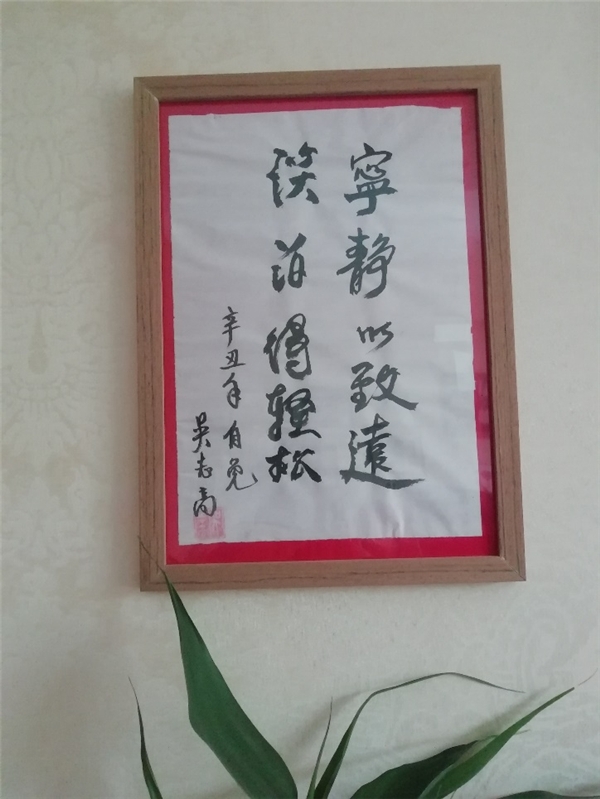 寧静以致遠
淡泊得輕松
辛丑年自免
吴志高